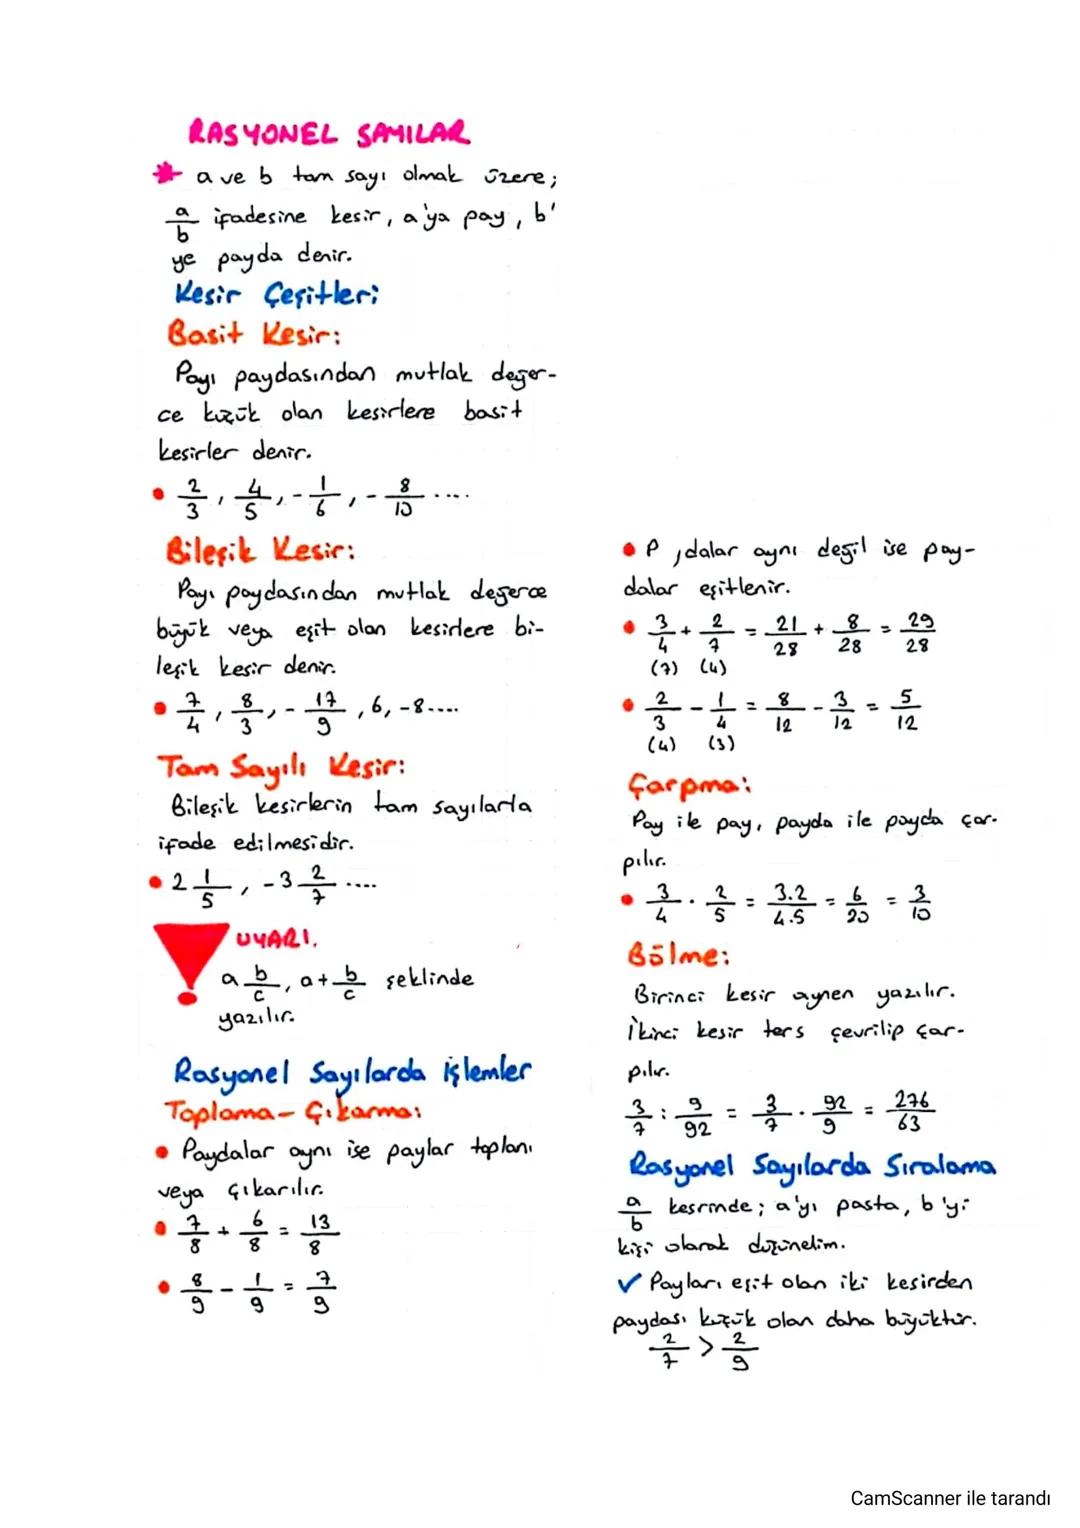 RASYONEL SAYILAR
* a ve b tam sayı olmak üzere;
a/b ifadesine kesir, a'ya pay, b'
ye payda denir.
Kesir Çeşitleri
Basit Kesir:
Payı paydasından mutlak değer-
ce küçük olan kesirlere basit
kesirler denir.
• 2/3, 4/5, -1/6, -8/10 ....
Bileşik Kesir:
Payı paydasından mutlak değerce
büyük veya eşit olan kesirlere bi-
leşik kesir denir.
• 7/4, 8/3, -17/9, 6, -8....
Tam Sayılı Kesir:
Bileşik kesirlerin tam sayılarla
ifade edilmesidir.
• 2 1/5, -3 2/7 ....
UYARI.
a b/c, a + b/c şeklinde
yazılır.
Rasyonel Sayılarda işlemler
Toplama - Çıkarma:
• Paydalar aynı ise paylar toplanı
veya çıkarılır.
• 7/8 + 6/8 = 13/8
• 8/9 - 1/9 = 7/9
• P dalar aynı değil ise pay-
dalar eşitlenir.
• 3/4 + 2/7 = 21/28 + 8/28 = 29/28
(7) (4)
• 2/3 - 1/4 = 8/12 - 3/12 = 5/12
(4) (3)
Çarpma:
Pay ile pay, payda ile payda çar-
pılır.
• 3/4 . 2/5 = 3.2/4.5 = 6/20 = 3/10
Bölme:
Birinci kesir aynen yazılır.
İkinci kesir ters çevrilip çar-
pılır.
3/7 : 9/92 = 3/7 . 92/9 = 276/63
Rasyonel Sayılarda Sıralama
a/b kesrinde; a'yı pasta, b'yi
kişi olarak düşünelim.
✓ Payları eşit olan iki kesirden
paydası küçük olan daha büyüktür.
2/7 > 2/9
CamScanner ile tarandı